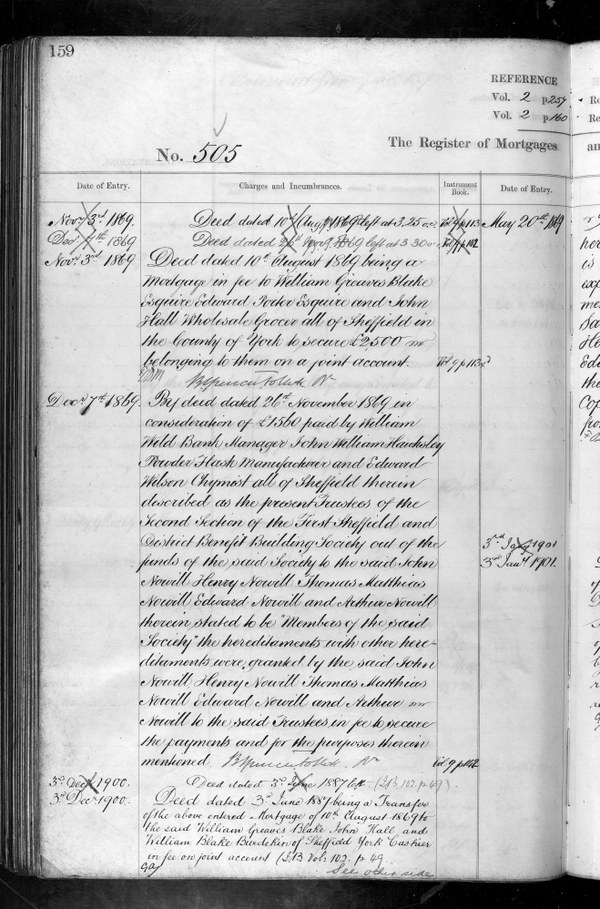 159
REFERENCE
Vol. 2 p 257
Vol. 2 p 160
No. 505
The Register of Mortgages
Date of Entry.
Charges and Incumbrances.
Instrument Book.
Date of Entry.
Novr 3rd 1869. Deed dated 10th Augt 1869 left at 3.25 Vol 9 p 113 May 20th 1869
Decr 7th 1869 Deed dated 26th 1869 left at 3.30 Vol 9 p 102
Novr 3rd 1869 Deed dated 10th August 1869 being a
Mortgage in fee to William Greaves Blake
Esquire Edward Esquire and John
Hall Wholesale Grocer all of Sheffield in
the County of York to secure £2,500
belonging to them on a joint account. Vol 9 p 113
Decr 7th 1869. By deed dated 26th November 1869 in
consideration of £1560 paid by William
Wild Bank Manager John William Hawksley
Powder Flask Manufacturer and Edward
Wilson Chymist all of Sheffield therein
described as the present Trustees of the
Second Section of the First Sheffield and
District Benefit Building Society out of the
funds of the said Society to the said John
Nowill Henry Nowill Thomas Matthias
Nowill Edward Nowill and Arthur Nowill
therein stated to be "Members of the said
Society" the hereditaments with other here-
ditaments were granted by the said John
Nowill Henry Nowill Thomas Matthias
Nowill Edward Nowill and Arthur
Nowill to the said Trustees in fee to secure
the payments and for the purposes therein
mentioned. Vol 9 p 102
3rd 1901
3rd Jany 1901.
3rd Decr 1900. Deed dated 3rd June 1887 left (I.B. 102. p. 49)
3rd Decr 1900. Deed dated 3rd June 1887 being a Transfer
of the above entered Mortgage of 10th August 1869 to
the said William Greaves Blake John Hall and
William Blake Burdekin of Sheffield York Cashier
in fee on joint account (I.B Vol: 102. p 49
See other side